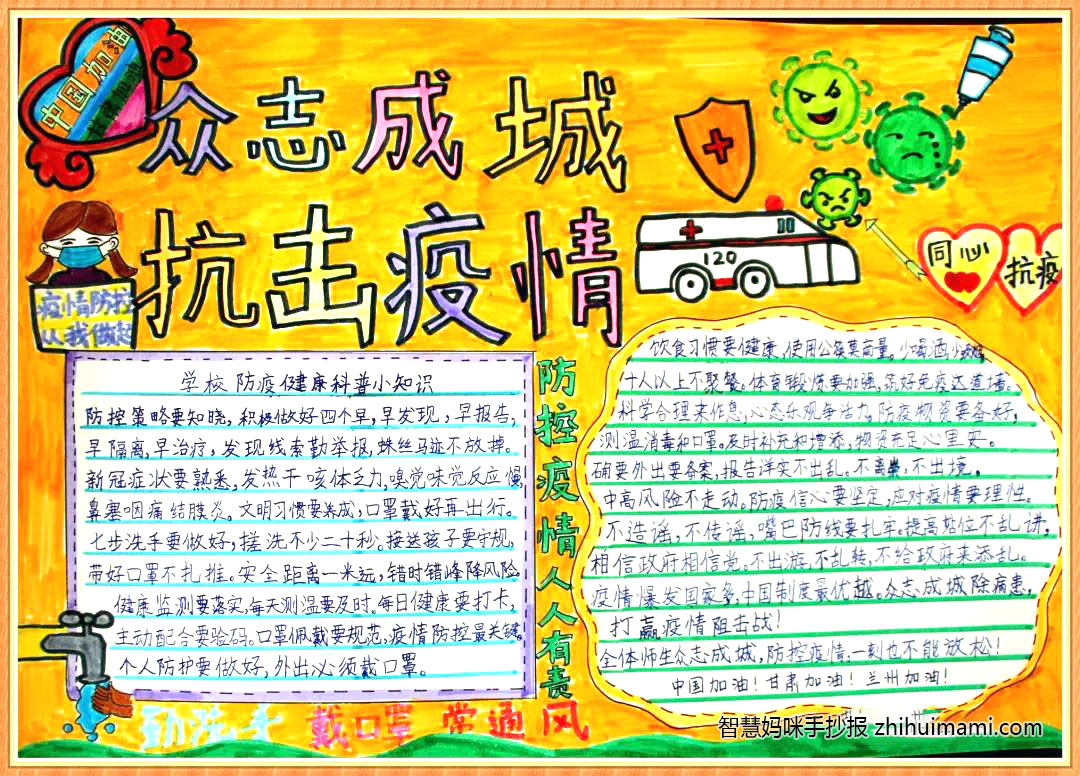 中国加油
众志成城
抗击疫情
120
同心
抗疫
疫情防控
从我做起
学校防疫健康科普小知识
防控策略要知晓,积极做好四个早,早发现,早报告,
早隔离,早治疗,发现线索勤举报,蛛丝马迹不放掉。
新冠症状要熟悉,发热干咳体乏力,嗅觉味觉反应慢,
鼻塞咽痛结膜炎。文明习惯要养成,口罩戴好再出行。
七步洗手要做好,搓洗不少二十秒。接送孩子要守规,
带好口罩不扎推。安全距离一米远,错时错峰降风险。
健康监测要落实,每天测温要及时。每日健康要打卡,
主动配合要验码。口罩佩戴要规范,疫情防控最关键。
个人防护要做好,外出必须戴口罩。
防控疫情人人有责
饮食习惯要健康,使用公筷莫商量。少喝酒,少
十人以上不聚餐。体育锻炼要加强,筑好免疫这道墙。
科学合理来作息,心态乐观争活力,防疫物资要备好,
测温消毒和口罩。及时补充和增添,物资充足心里安。
确要外出要备案,报告详实不出乱。不离,不出境。
中高风险不走动。防疫信心要坚定,应对疫情要理性。
不造谣,不传谣,嘴巴防线要扎牢,提高站位不乱讲,
相信政府相信党。不出游,不乱转,不给政府来添乱。
疫情爆发国家多,中国制度最优越。众志成城除病患,
打赢疫情阻击战!
全体师生众志成城,防控疫情,一刻也不能放松!
中国加油!甘肃加油!兰州加油!
勤洗手 戴口罩 常通风
智慧妈咪手抄报 zhihuimami.com